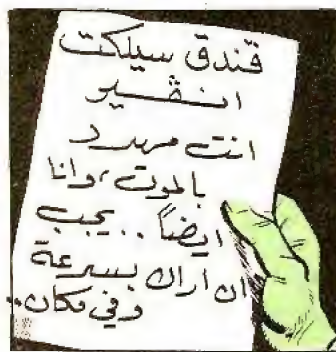 فندق سيلكت
انڤير
انت مهدد
بالموت، وانا
ايضاً .. يجب
ان اراك بسرعة
وفي مكان..